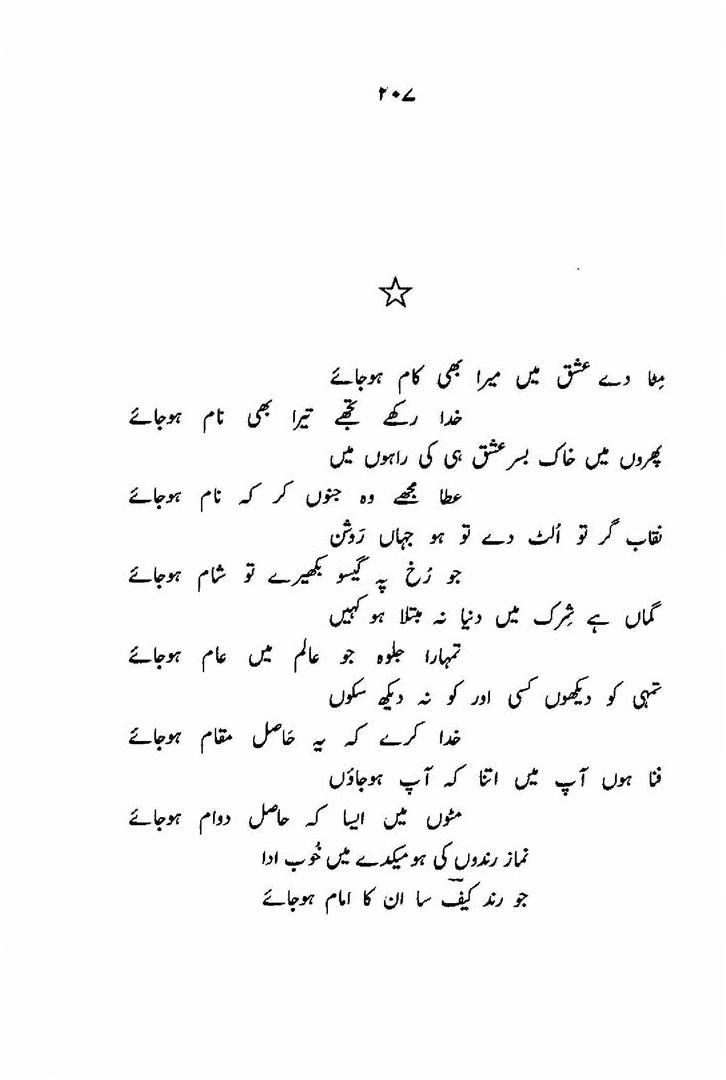 ۲۰۷
مِٹا دے عشق میں میرا بھی کام ہوجائے
خدا رکھے تجھے تیرا بھی نام ہوجائے
پھروں میں خاک بسر عشق ہی کی راہوں میں
عطا مجھے وہ جنوں کر کہ نام ہوجائے
نقاب گر تو اُلٹ دے تو ہو جہاں رَوشن
جو رُخ پہ گیسو بکھیرے تو شام ہوجائے
گماں ہے شِرک میں دنیا نہ مبتلا ہو کہیں
تمہارا جلوہ جو عالم میں عام ہوجائے
تمہی کو دیکھوں کسی اور کو نہ دیکھ سکوں
خدا کرے کہ یہ حَاصل مقام ہوجائے
فنا ہوں آپ میں اتنا کہ آپ ہوجاؤں
مٹوں میں ایسا کہ حاصل دوام ہوجائے
نماز رندوں کی ہو میکدے میں خُوب ادا
جو رند کیفؔ سا ان کا امام ہوجائے